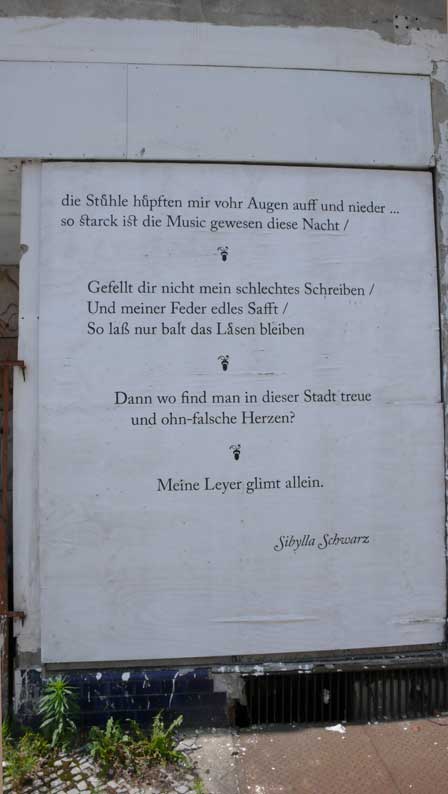 die Stůhle hůpften mir vohr Augen auff und nieder ...
so starck ist die Music gewesen diese Nacht /
Gefellt dir nicht mein schlechtes Schreiben /
Und meiner Feder edles Safft /
So laß nur balt das Låsen bleiben
Dann wo find man in dieser Stadt treue
und ohn-falsche Herzen?
Meine Leyer glimt allein.
Sibylla Schwarz